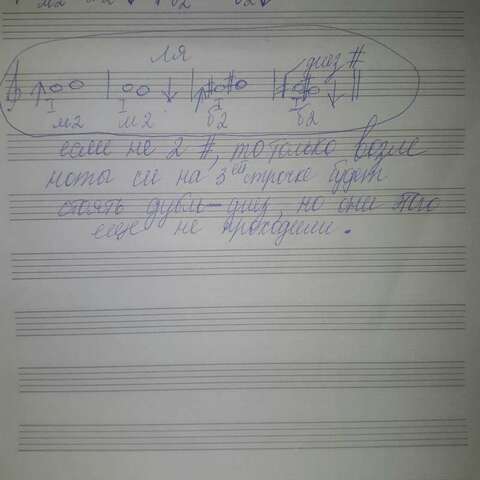 м2 м2 ↓ ↑ б2 б2 ↓
ля
диез #
I I I I
м2 м2 б2 б2
если не 2 #, то только возле
ноты си на 3ей строчке будет
стоять дубль-диез, но они этого
еще не проходили.